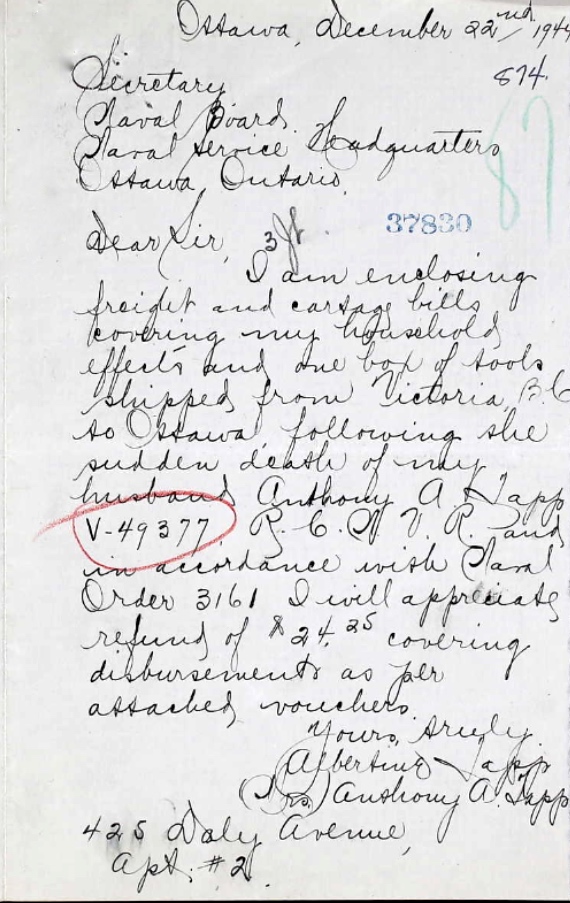 Ottawa, December 22nd, 1944
874.
Secretary
Naval Board.
Naval Service Headquarters
Ottawa, Ontario.
87
Dear Sir,
37830
I am enclosing
freight and cartage bills
covering my household
effects and one box of tools
shipped from Victoria, B.C
to Ottawa following the
sudden death of my
husband Anthony A. Tapp
V-49377 R.C.N.V.R. and
in accordance with Naval
Order 3161 I will appreciate
refund of $24.25 covering
disbursements as per
attached vouchers.
Yours truly.
Albertine Tapp
(Mrs) Anthony A. Tapp
425 Daly Avenue,
Apt. #2.